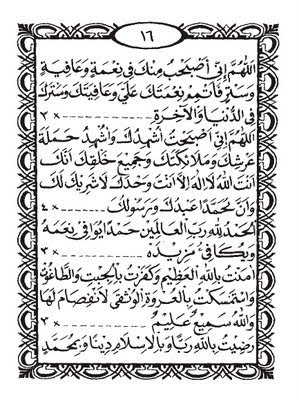 ١٦
اَللّٰهُمَّ اِنِّيْ اَصْبَحْتُ مِنْكَ فِيْ نِعْمَةٍ وَعَافِيَةٍ
وَسِتْرٍ فَاَتْمِمْ نِعْمَتَكَ عَلَيَّ وَعَافِيَتَكَ وَسِتْرَكَ
فِي الدُّنْيَا وَالْآخِرَةِ ×٣
اَللّٰهُمَّ اِنِّيْ اَصْبَحْتُ اُشْهِدُكَ وَاُشْهِدُ حَمَلَةَ
عَرْشِكَ وَمَلَائِكَتَكَ وَجَمِيْعَ خَلْقِكَ اَنَّكَ
اَنْتَ اللهُ لَا اِلٰهَ اِلَّا اَنْتَ وَحْدَكَ لَا شَرِيْكَ لَكَ
وَاَنَّ مُحَمَّدًا عَبْدُكَ وَرَسُوْلُكَ ×٤
اَلْحَمْدُ لِلّٰهِ رَبِّ الْعَالَمِيْنَ حَمْدًا يُوَافِيْ نِعَمَهُ
وَيُكَافِئُ مَزِيْدَهُ ×٣
اٰمَنْتُ بِاللهِ الْعَظِيْمِ وَكَفَرْتُ بِالْجِبْتِ وَالطَّاغُوْتِ
وَاسْتَمْسَكْتُ بِالْعُرْوَةِ الْوُثْقٰى لَا انْفِصَامَ لَهَا
وَاللهُ سَمِيْعٌ عَلِيْمٌ ×٣
رَضِيْتُ بِاللهِ رَبًّا وَبِالْاِسْلَامِ دِيْنًا وَبِمُحَمَّدٍ